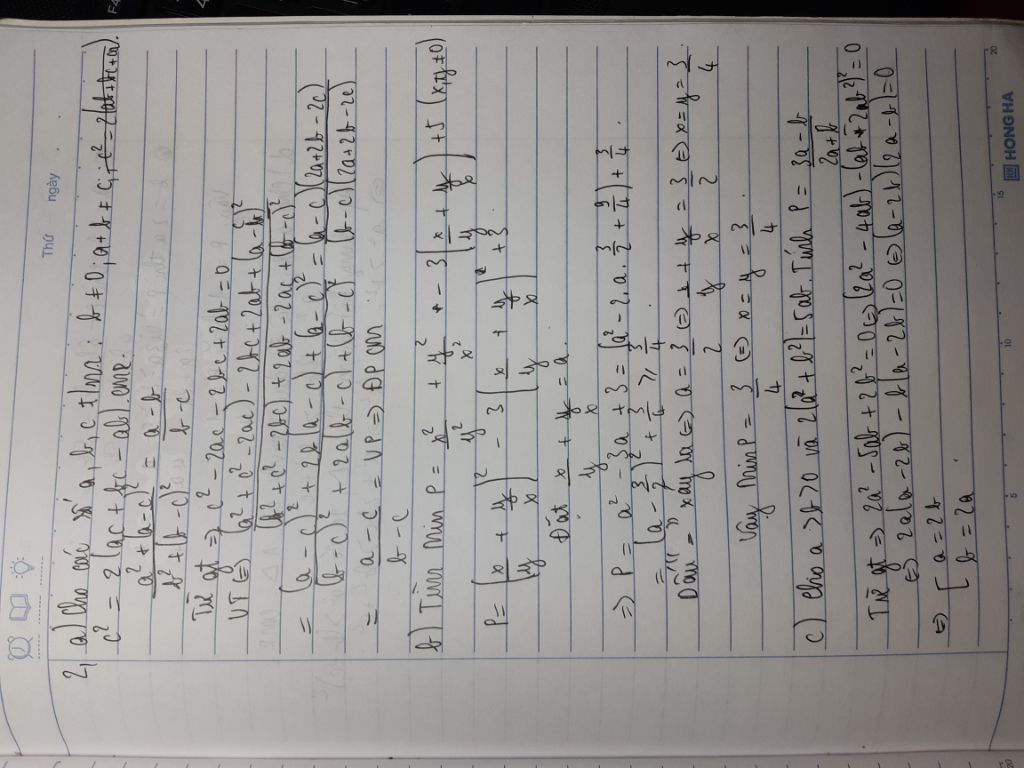 Thứ ngày
2, a) Cho các số a, b, c tmđk: b ≠ 0, a+b ≠ c, c² = 2(ab+bc+ac).
c² = 2(ac + bc - ab). cmr:
a² + (a-c)² / b² + (b-c)² = a-b / b-c
Từ gt => c² - 2ac - 2bc + 2ab = 0
VT <=> (a² + c² - 2ac) - 2bc + 2ab + (a-c)² / (b² + c² - 2bc) + 2ab - 2ac + (b-c)²
= (a-c)² + 2b(a-c) + (a-c)² / (b-c)² + 2a(b-c) + (b-c)² = (a-c)(2a+2b-2c) / (b-c)(2a+2b-2c)
= a-c / b-c = VP => ĐPCM
b) Tìm min P = x²/y² + y²/x² - 3(x/y + y/x) + 5 (x,y ≠ 0)
P = (x/y + y/x)² - 3(x/y + y/x) + 3
Đặt x/y + y/x = a
=> P = a² - 3a + 3 = (a² - 2.a.3/2 + 9/4) + 3/4
= (a - 3/2)² + 3/4 ≥ 3/4
Dấu "=" xảy ra <=> a = 3/2 <=> x/y + y/x = 3/2 <=> x = y = 3/4
Vậy min P = 3/4 <=> x = y = 3/4.
c) Cho a > b > 0 và 2(a² + b²) = 5ab Tính P = 3a-b / 2a+b
Từ gt => 2a² - 5ab + 2b² = 0 <=> (2a² - 4ab) - (ab + 2ab²)² = 0
<=> 2a(a-2b) - b(a-2b) = 0 <=> (a-2b)(2a-b) = 0
<=> [ a = 2b
[ b = 2a
5 10 15 20
HONG HA